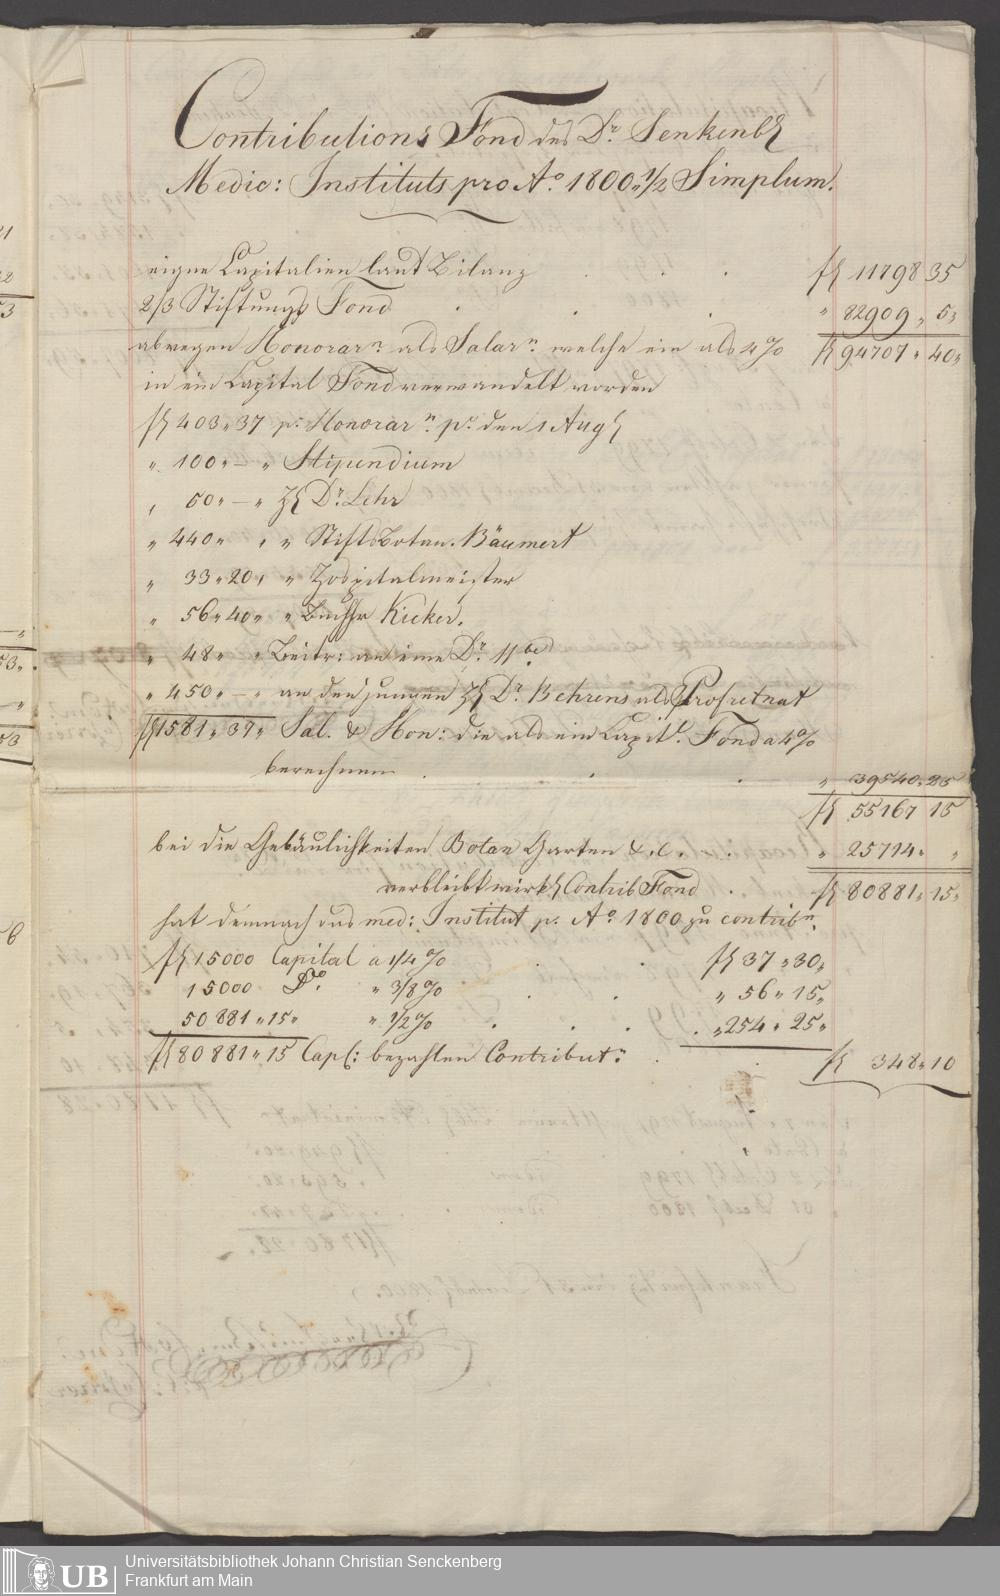 Contributions Fond des Dr. Senkenb
Medic: Instituts pro Ao. 1800 „ 1/2 Simplum.
eigne Capitalien laut Bilanz . . . f 11798 35
2/3 Stiftungs Fond . . . „ 82909 „ 5„
abwegen Honorarn. als Salarn. welche ein als 4 % f 94707 „ 40„
in ein Capital Fond verwandelt worden
f 403„37 p. Honorarn. p. den 1 Aug
„ 100„ — „ Stipendium
„ 50„ — „ H Dr. Lehr
„ 440„ „ „ Stifts Botan. Bäumert
„ 33„20„ „ Hospitalmeister
„ 56„40„ „ Kicker.
„ 48„ „ Beitr: an eine Dr.
„ 450„ — „ an den jungen H Dr. Behrens als
f 1581„37„ Sal. & Hon: die als ein Capit. Fond a 4 %
berechnen . . . „ 39540„25
f 55167 15
bei die Gebäulichkeiten Botan Garten &.c. . . „ 25714„ „
verbleibt wirkl Contrib Fond . f 80881„15„
hat demnach das med: Institut p. Ao. 1800 zu contribn.
f 15000 Capital a 1/4 % . . f 37„30„
15000 Do. „ 3/8 % . . „ 56„15„
50881„15„ „ 1/2 % . . . . „ 254„25„
f 80881„15 Cap: bezahlen Contribut: . f 348„10
UB
Universitätsbibliothek Johann Christian Senckenberg
Frankfurt am Main